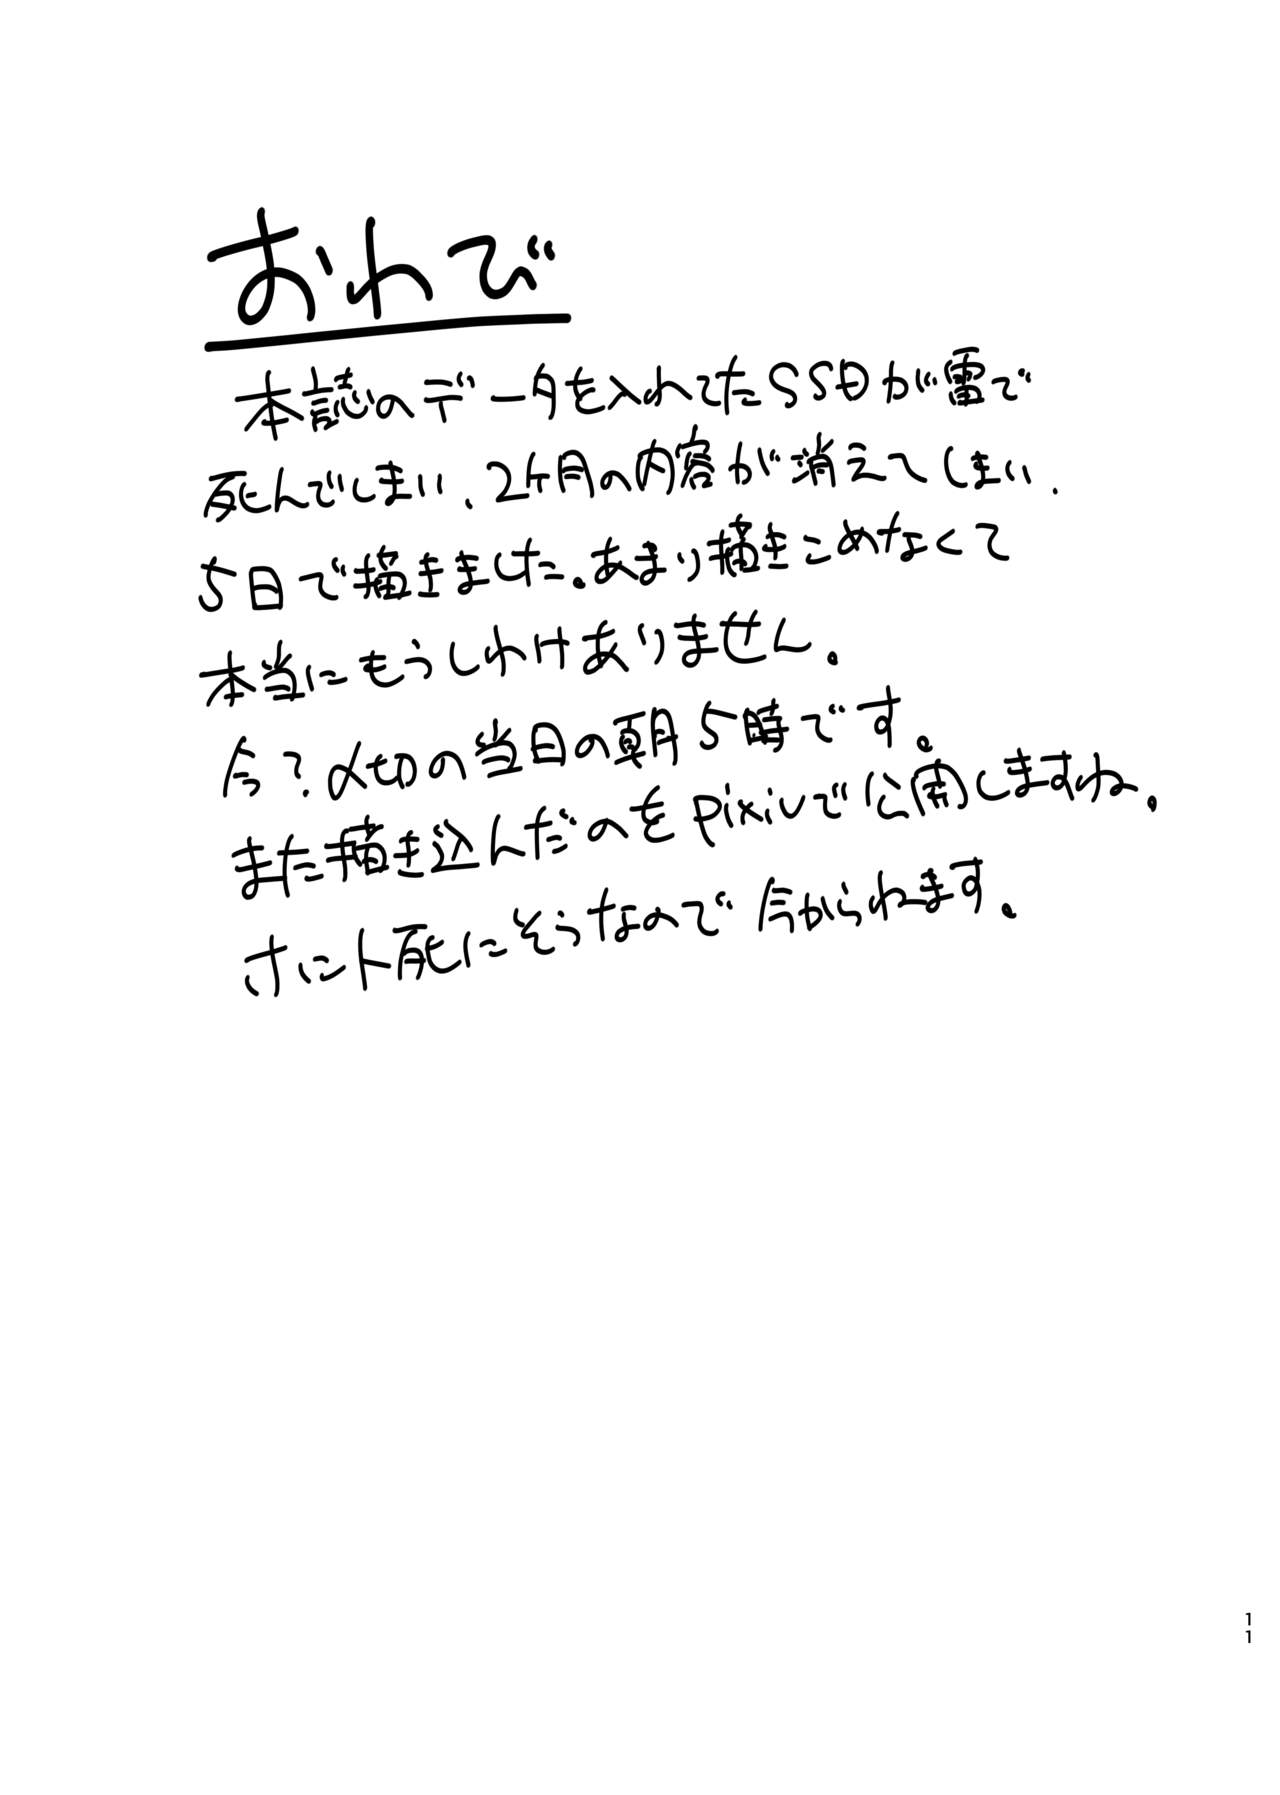 おわび
本誌のデータを入れてたSSDが雷で
死んでしまい、2ヶ月の内容が消えてしまい、
5日で描きました。あまり描きこめなくて
本当にもうしわけありません。
今?〆切の当日の朝5時です。
また描き込んだのをpixivで公開しますね。
ホント死にそうなので今からねます。
11